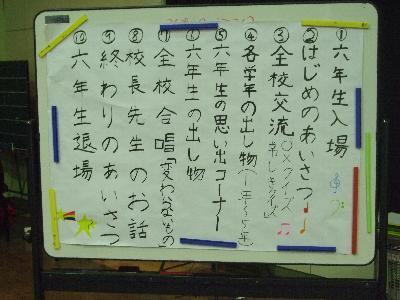 ①六年生入場
②はじめのあいさつ
③全校交流
○×クイズ
④各学年の出し物(一年〜5年)
⑤六年生の思い出コーナー
⑥六年生の出し物
⑦全校合唱「変わらないもの
⑧校長先生のお話
⑨終わりのあいさつ
⑩六年生退場